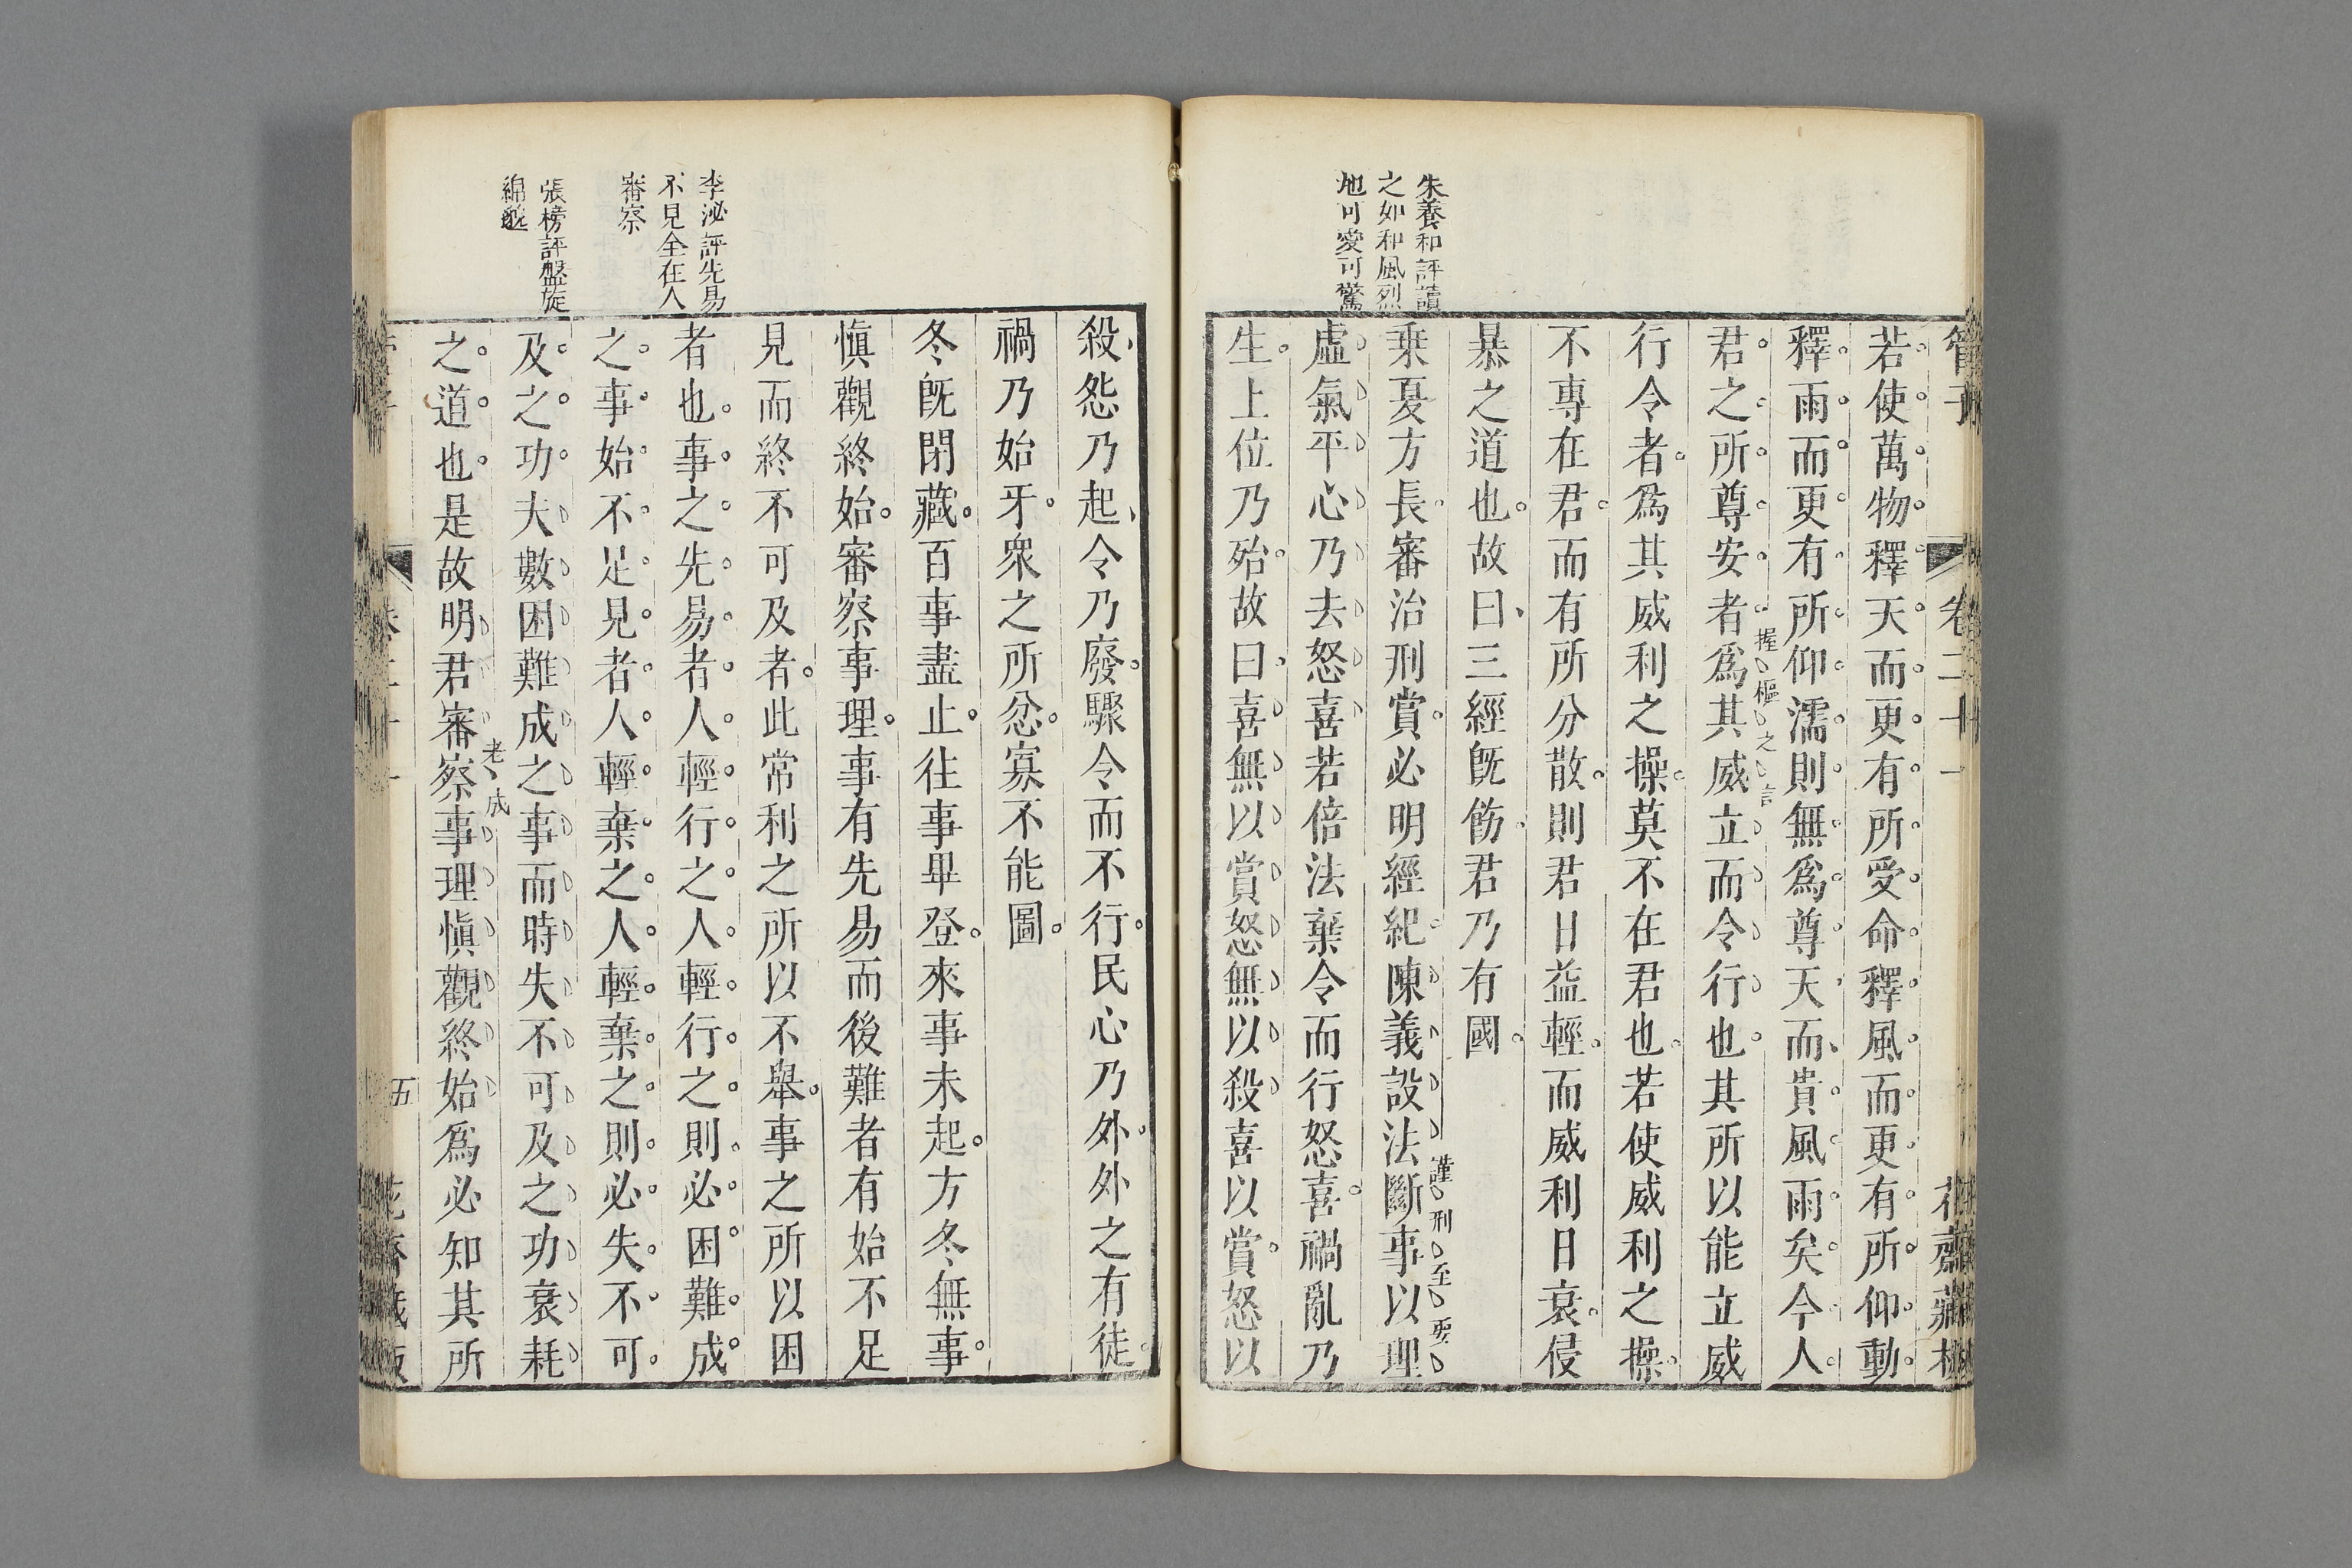 管子
卷二十一
花齋藏板
若使萬物釋天而更有所受命釋風而更有所仰動
釋雨而更有所仰濡則無爲尊天而貴風雨矣今人
君之所尊安者爲其威立而令行也其所以能立威
握樞之言
行令者爲其威利之操莫不在君也若使威利之操
不專在君而有所分散則君日益輕而威利日衰侵
暴之道也故曰三經旣飭君乃有國
謹刑至要
乗夏方長審治刑賞必明經紀陳義設法斷事以理
虛氣平心乃去怒喜若倍法棄令而行怒喜禍亂乃
生上位乃殆故曰喜無以賞怒無以殺喜以賞怒以
朱養和評讀
之如和風烈
地可愛可驚
殺怨乃起令乃廢驟令而不行民心乃外外之有徒
禍乃始牙衆之所忿寡不能圖
冬旣閉藏百事盡止往事畢登來事未起方冬無事
愼觀終始審察事理事有先易而後難者有始不足
見而終不可及者此常利之所以不舉事之所以困
者也事之先易者人輕行之人輕行之則必困難成
之事始不足見者人輕棄之人輕棄之則必失不可
及之功夫數困難成之事而時失不可及之功衰耗
老成
之道也是故明君審察事理愼觀終始爲必知其所
李泌評先易
不見全在人
審察
張榜評盤旋
綿邈
五